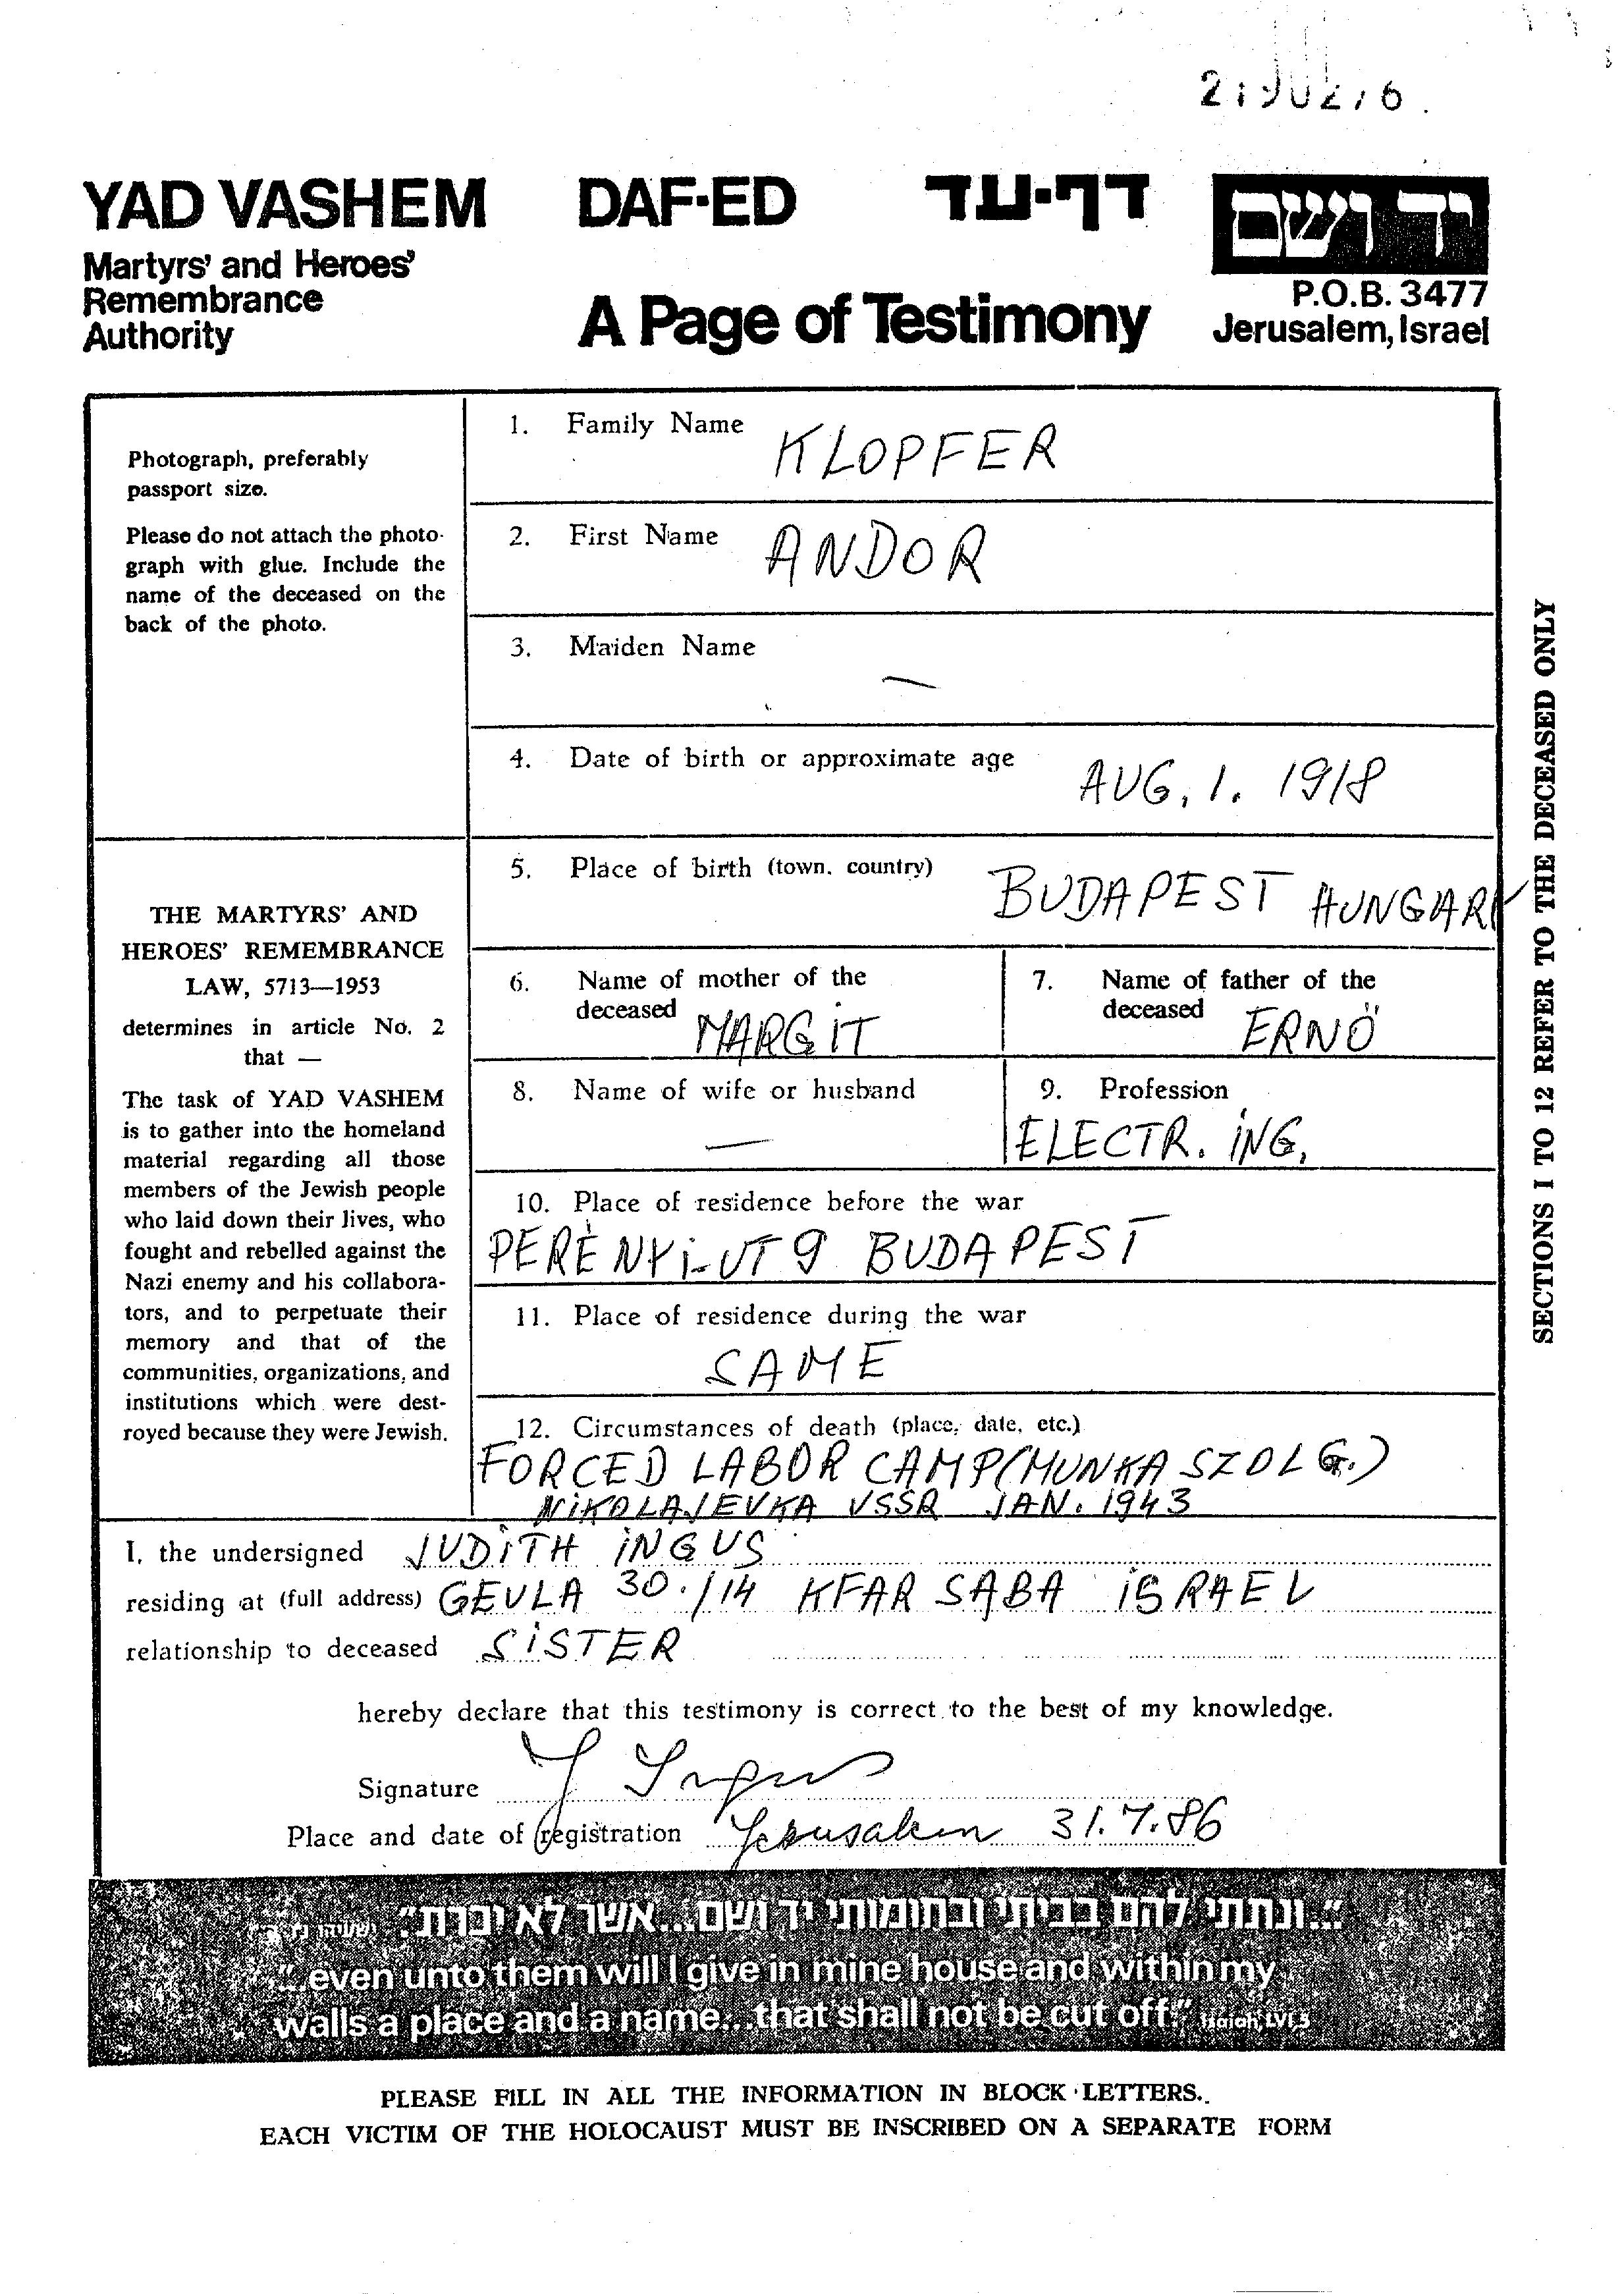 YAD VASHEM DAF-ED דף-עד יד ושם
Martyrs' and Heroes'
Remembrance
Authority
A Page of Testimony
P.O.B. 3477
Jerusalem, Israel
Photograph, preferably
passport size.
Please do not attach the photo-
graph with glue. Include the
name of the deceased on the
back of the photo.
THE MARTYRS' AND
HEROES' REMEMBRANCE
LAW, 5713—1953
determines in article No. 2
that —
The task of YAD VASHEM
is to gather into the homeland
material regarding all those
members of the Jewish people
who laid down their lives, who
fought and rebelled against the
Nazi enemy and his collabora-
tors, and to perpetuate their
memory and that of the
communities, organizations, and
institutions which were dest-
royed because they were Jewish.
1. Family Name KLOPFER
2. First Name ANDOR
3. Maiden Name —
4. Date of birth or approximate age AUG. 1. 1918
5. Place of birth (town, country) BUDAPEST HUNGARY
6. Name of mother of the
deceased MARGIT
7. Name of father of the
deceased ERNÖ
8. Name of wife or husband
—
9. Profession
ELECTR. ING.
10. Place of residence before the war
PERÉNYI-UT 9 BUDAPEST
11. Place of residence during the war
SAME
12. Circumstances of death (place, date, etc.)
FORCED LABOR CAMP (MUNKA SZOLG.)
NIKOLAJEVKA USSR JAN. 1943
SECTIONS 1 TO 12 REFER TO THE DECEASED ONLY
I, the undersigned JUDITH INGUS
residing at (full address) GEULA 30./14 KFAR SABA ISRAEL
relationship to deceased SISTER
hereby declare that this testimony is correct to the best of my knowledge.
Signature J Ingus
Place and date of registration Jerusalem 31.7.86
"...ונתתי להם בביתי ובחומותי יד ושם...אשר לא יכרת" ישעיהו נו, ה
"...even unto them will I give in mine house and within my
walls a place and a name...that shall not be cut off." Isaiah, LVI, 5
PLEASE FILL IN ALL THE INFORMATION IN BLOCK LETTERS.
EACH VICTIM OF THE HOLOCAUST MUST BE INSCRIBED ON A SEPARATE FORM